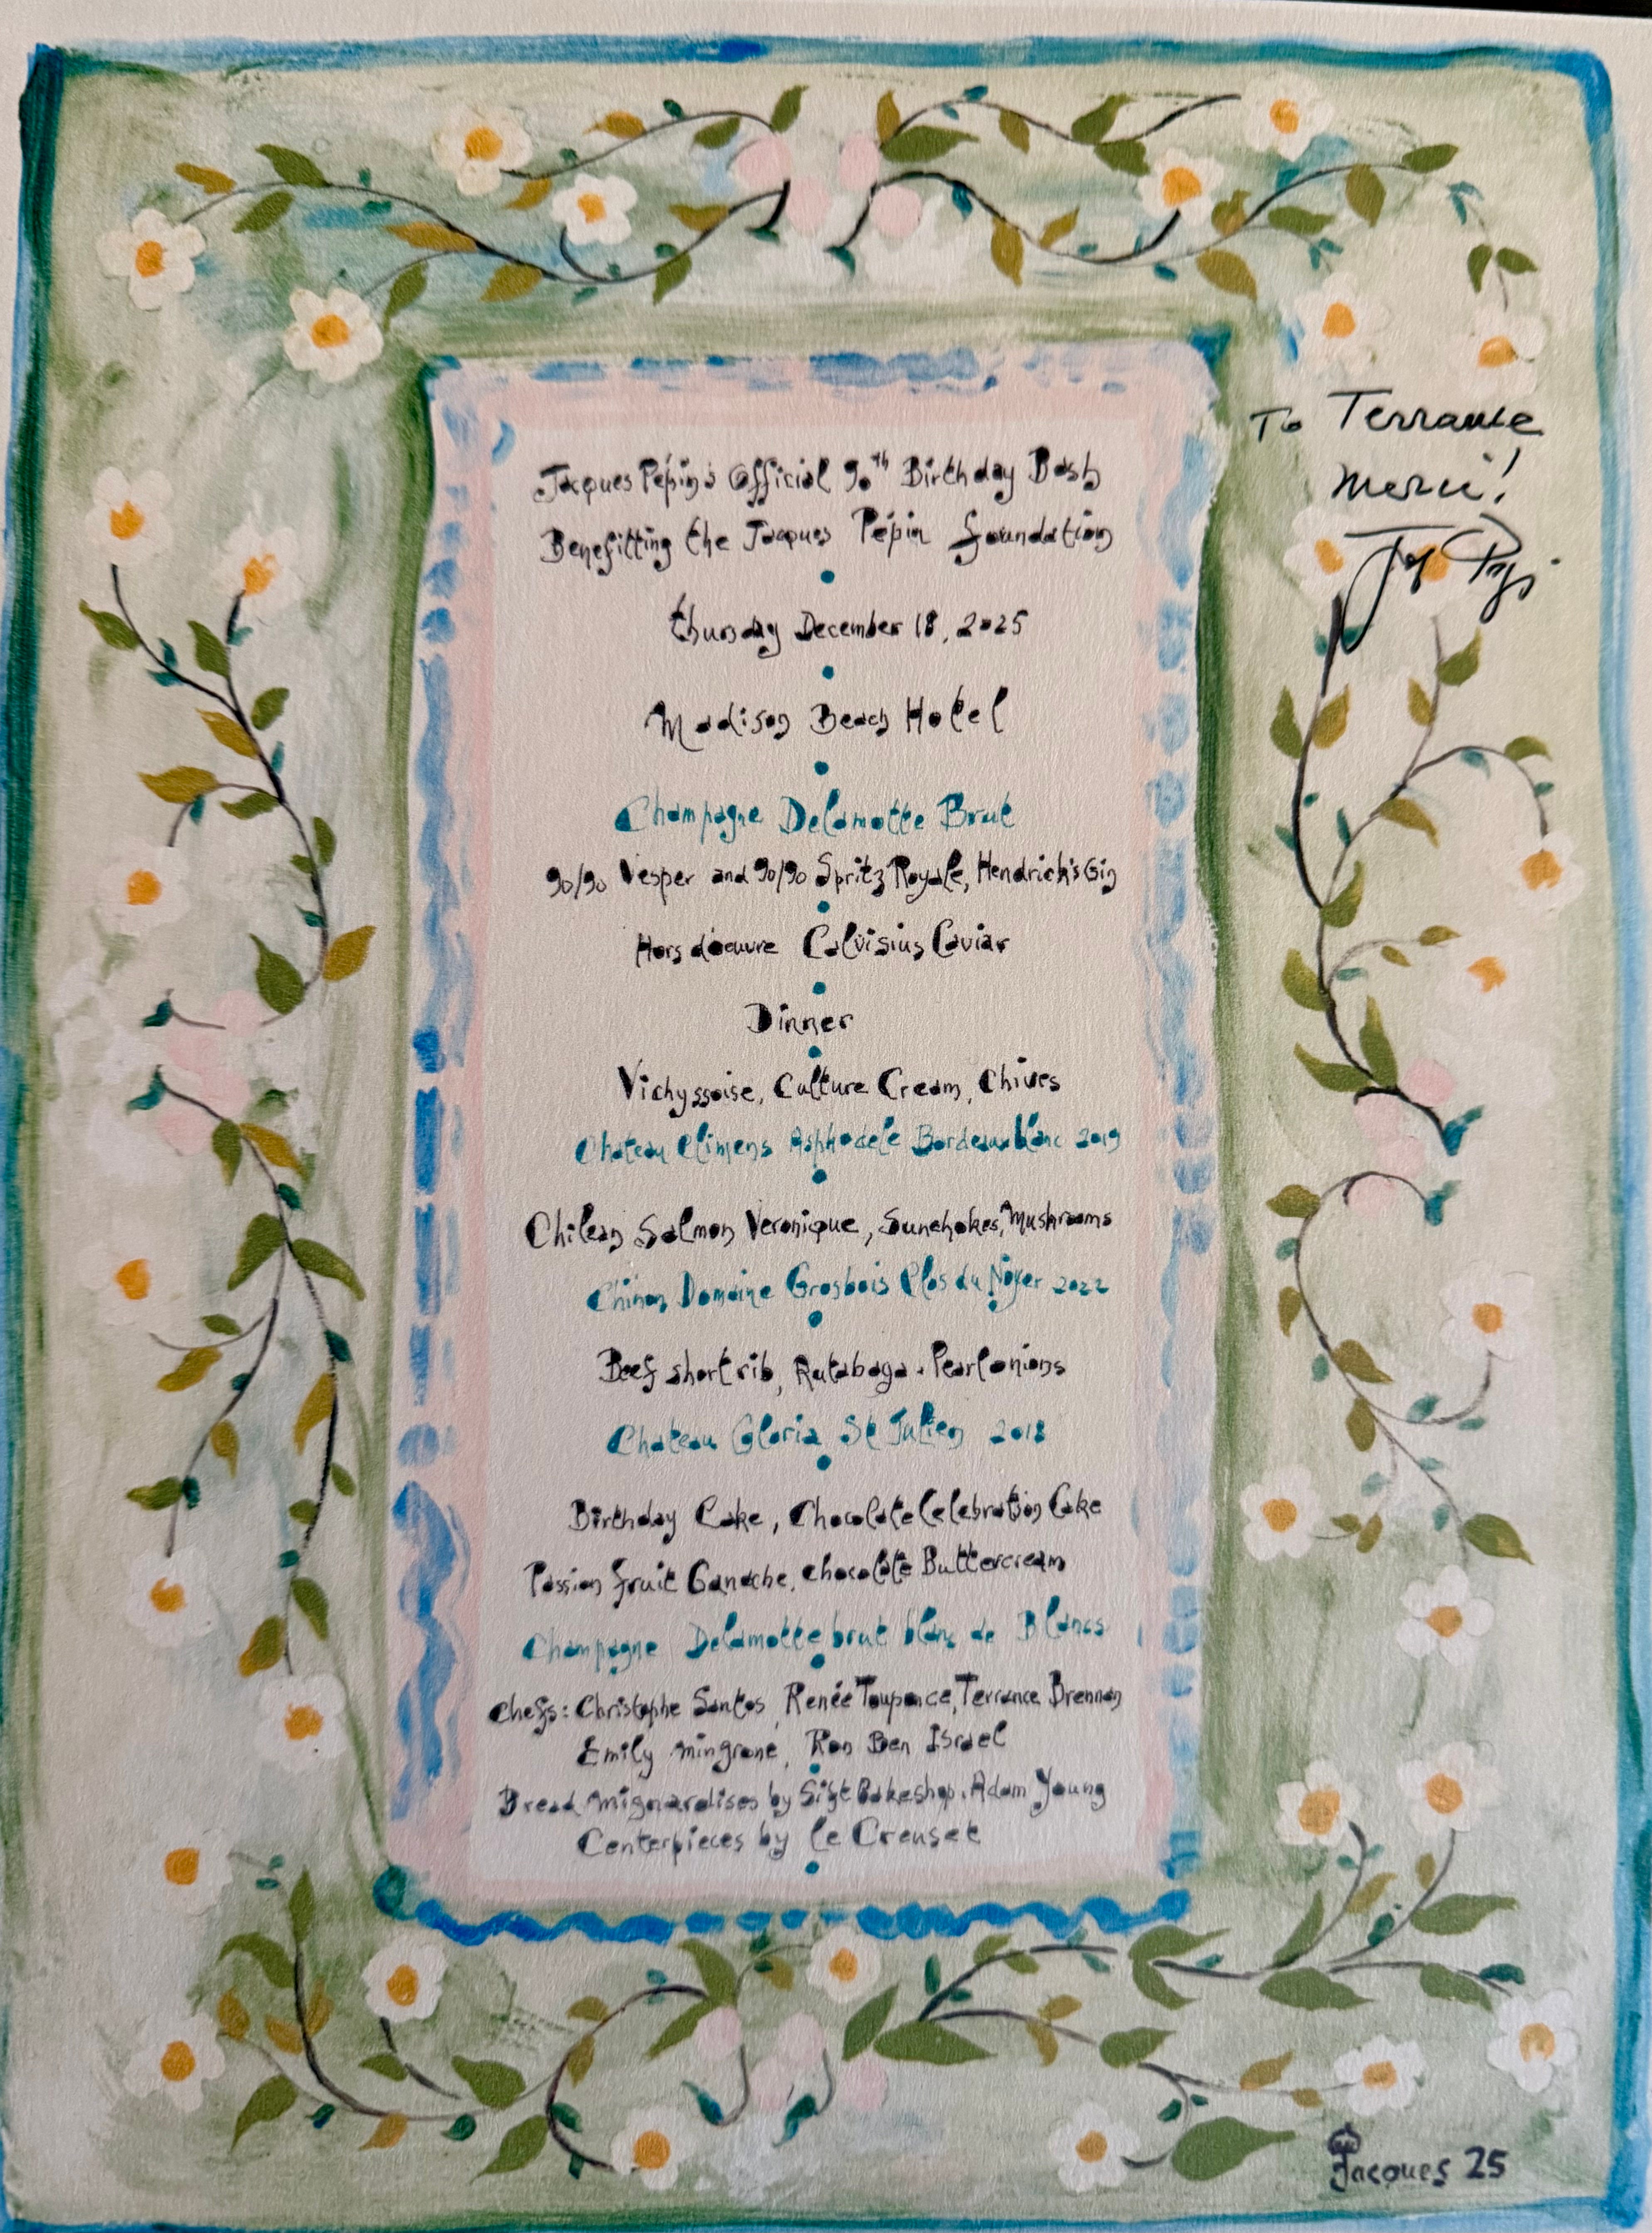 Jacques Pépin's Official 90th Birthday Bash
Benefitting the Jacques Pépin foundation
Thursday December 18, 2025
Madison Beach Hotel
Champagne Delamotte Brut
90/90 Vesper and 90/90 Spritz Royale, Hendrick's Gin
Hors d'oeuvre Calvisius Caviar
Dinner
Vichyssoise, Culture Cream, Chives
Chateau Climens Asphodele Bordeaux blanc 2019
Chilean Salmon Veronique, Sunchokes, Mushrooms
Chinon Domaine Grosbois Clos du Noyer 2022
Beef short rib, Rutabaga. Pearl onions
Chateau Gloria St Julien 2018
Birthday Cake, Chocolate Celebration Cake
Passion fruit Ganache, chocolate Buttercream
Champagne Delamotte brut blanc de Blancs
Chefs: Christophe Santos, Renée Touponce, Terrance Brennan
Emily Mingrone, Ron Ben Israel
Bread Mignardises by Sift Bakeshop. Adam Young
Centerpieces by le Creuset
To Terrance
merci!
Jacques 25